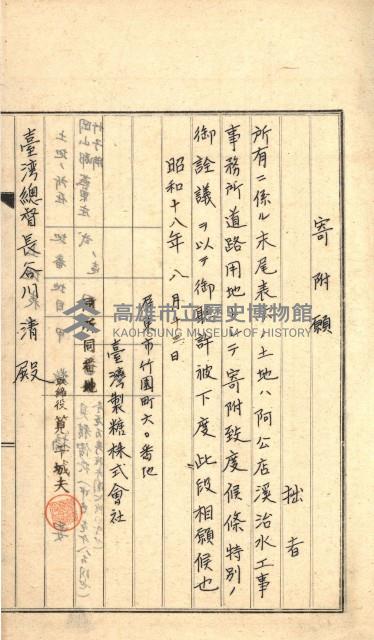 寄附願
拙者
所有ニ係ル末尾表示ノ土地ハ阿公店溪治水工事
事務所道路用地トシテ寄附致度候條特別ノ
御詮議ヲ以テ御聽許被下度此段相願候也
昭和十八年八月三日
屏東市竹園町六〇番地
臺灣製糖株式會社
同所同番地
取締役筧干城夫
臺灣總督長谷川清殿
土地ノ所在
地番
地目
甲
岡山郡燕巢庄
高雄市立歷史博物館
KAOHSIUNG MUSEUM OF HISTORY